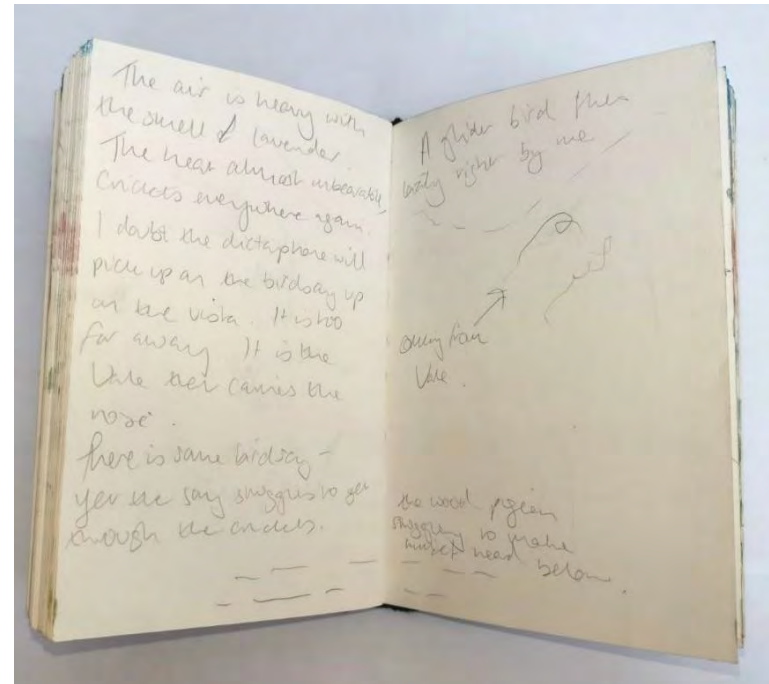 The air is heavy with
the smell of lavender.
The heat almost unbearable,
Crickets everywhere again.
I doubt the dictaphone will
pick up on the birdsong up
on the vista. It is too
far away It is the
Vale that carries the
noise.
there is some birdsong –
yet the song struggles to get
through the crickets.
A glider bird flies
lazily right by me
coming from
Vale.
the wood pigeon
struggling to make
itself heard below.